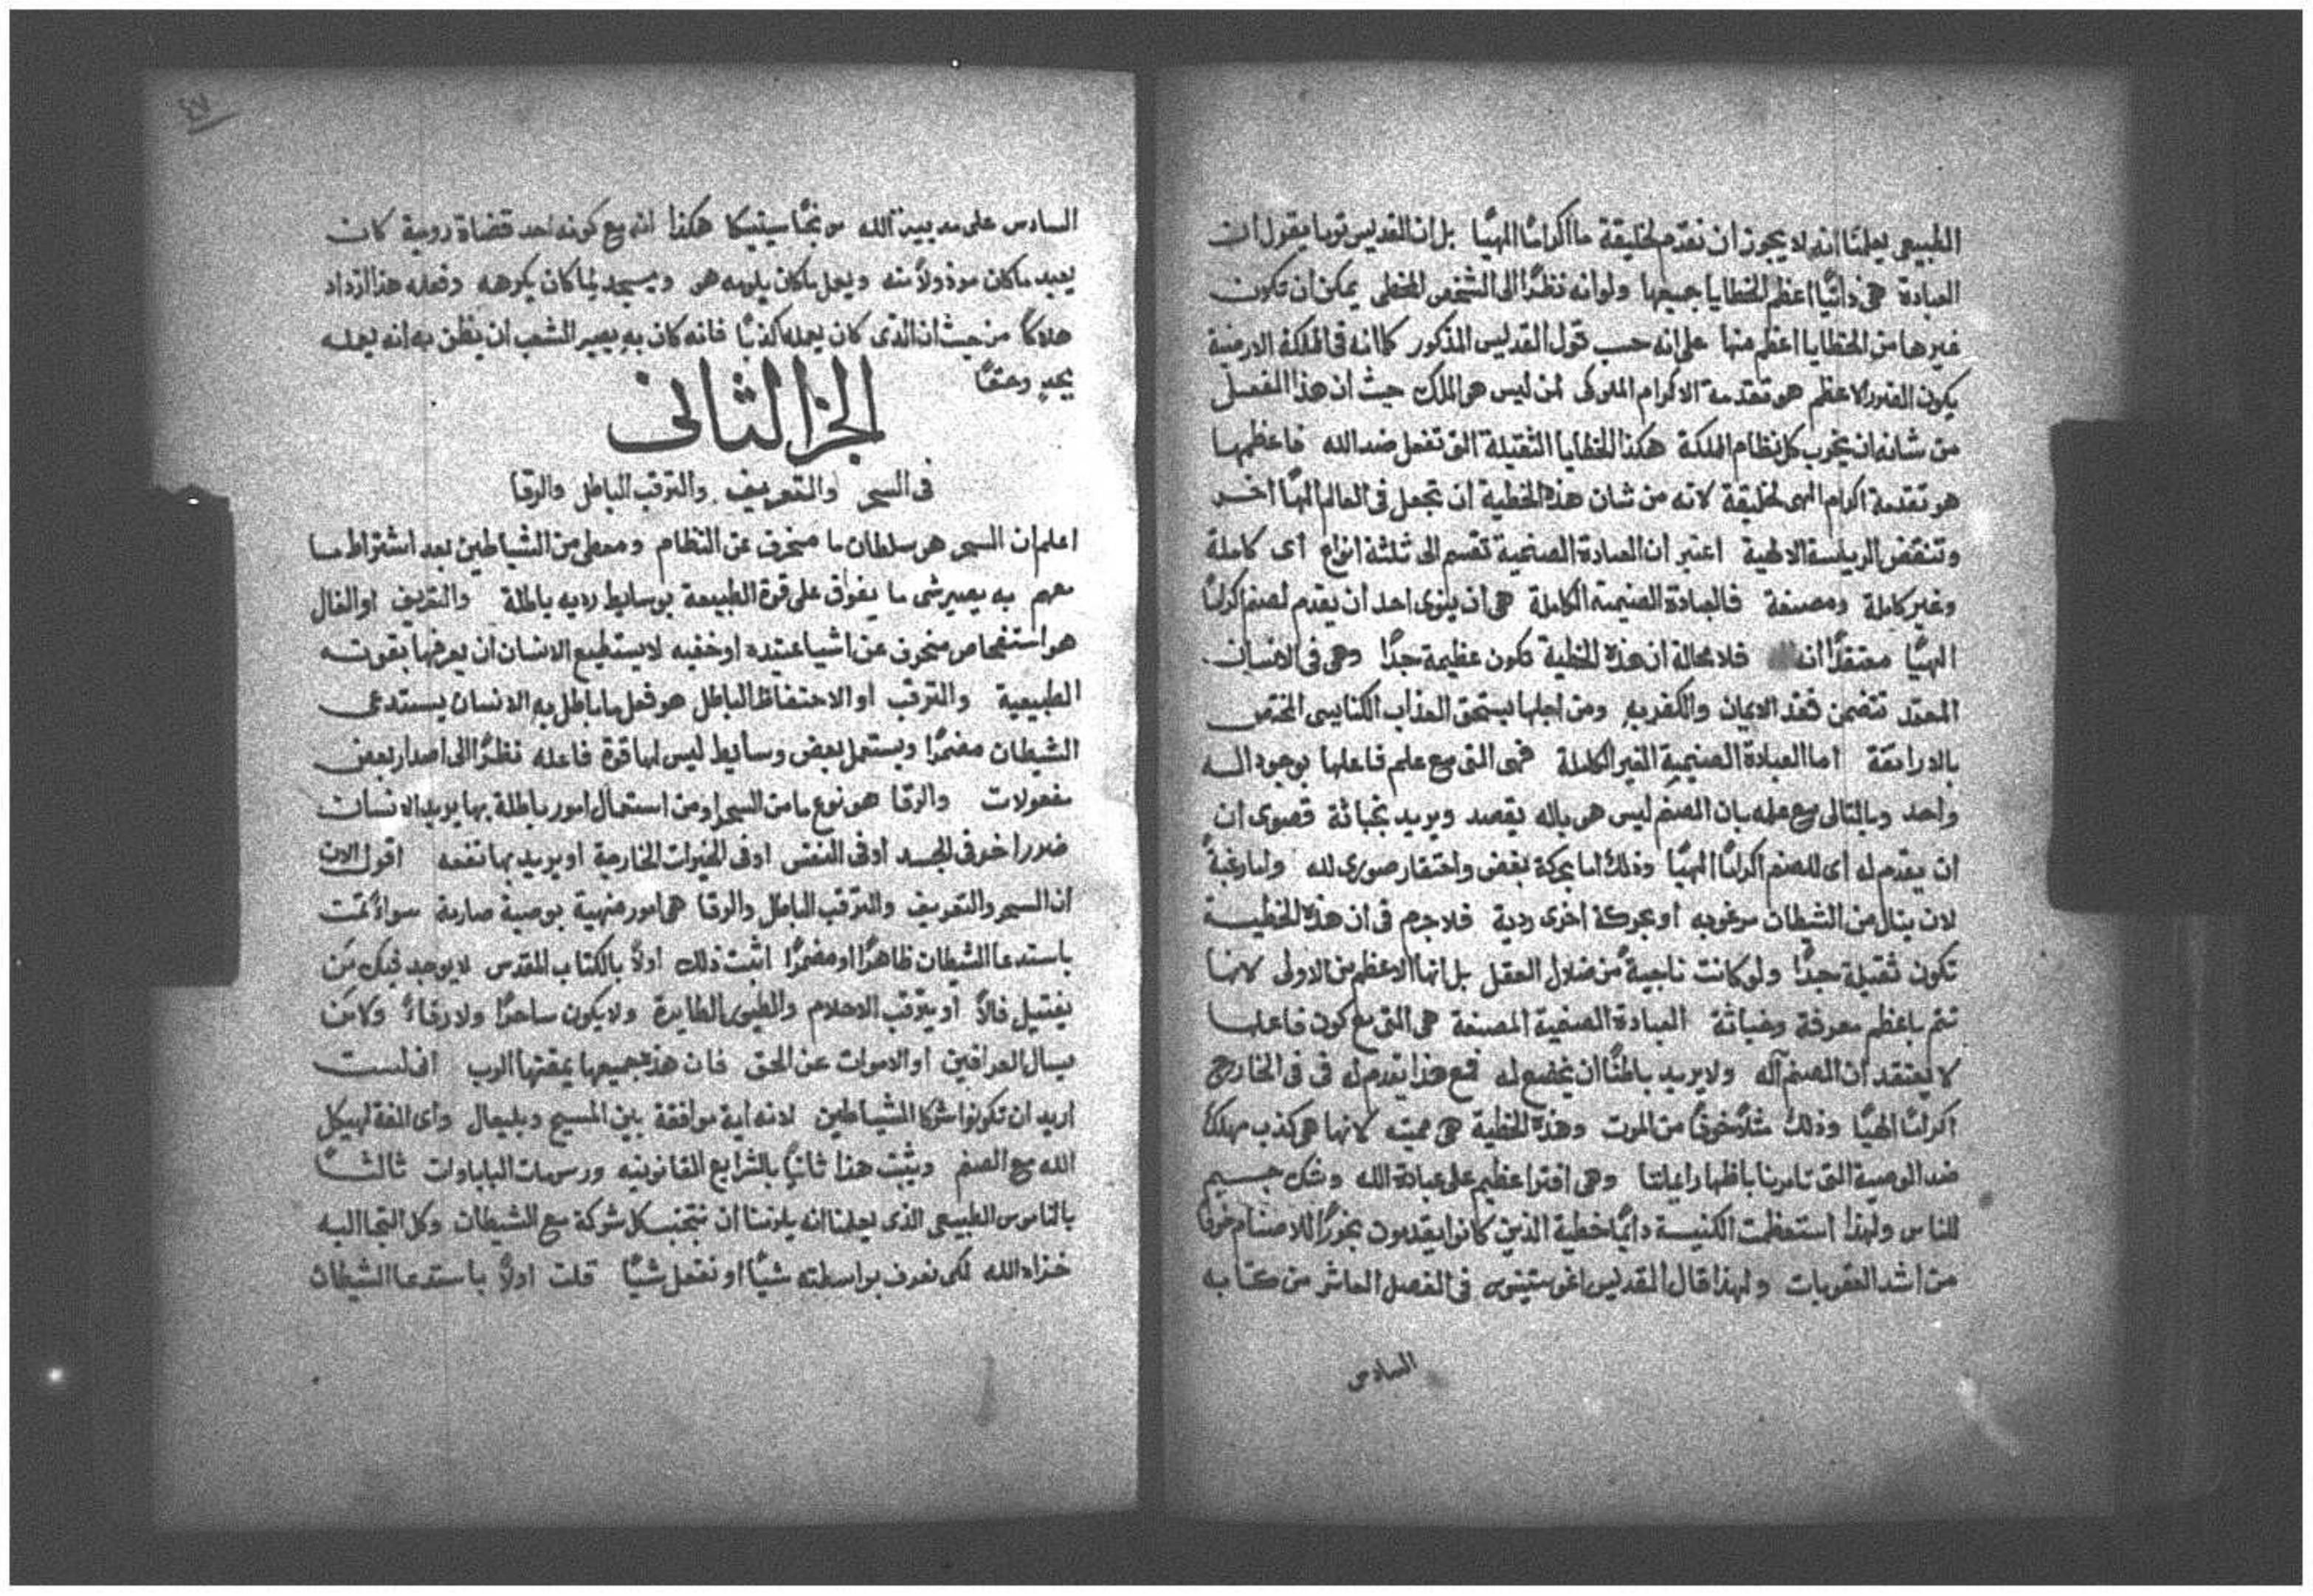 الطبيعى يعلمنا انه لا يجوز ان نقدم لخليقة ما اكرامًا الهيًا بل ان القديس توما يقول ان
العبادة هى ذاتيًا اعظم الخطايا جميعها ولو انه نظرًا الى الشخص المخطى يمكن ان تكون
غيرها من الخطايا اعظم منها على انه حسب قول القديس المذكور كما انه فى المملكة الارضية
يكون الضرر الاعظم هو تقدمة الاكرام الملوكى لمن ليس هو الملك حيث ان هذا الفعل
من شانه ان يخرب كل نظام المملكة هكذا الخطايا الثقيلة التى تفعل ضد الله فاعظمها
هو تقدمة اكرام الهى لخليقة لانه من شان هذه الخطية ان تجعل فى العالم الهًا اخر
وتنقض الرياسة الالهية اعتبر ان العبادة الصنمية تقسم الى ثلثة انواع اى كاملة
وغير كاملة ومصنعة فالعبادة الصنمية الكاملة هى ان ينوى احد ان يقدم لصنم اكرامًا
الهيًا معتقدًا انه فلا محالة ان هذه الخطية تكون عظيمة جدًا وهى فى الانسان
المعمد تتضمن فقد الايمان والكفر به ومن اجلها يستحق العذاب الكنايسى المختص
بالدراتقة اما العبادة الصنيمية الغير الكاملة فهى التى مع علم فاعلها بوجود اله
واحد وبالتالى مع علمه بان الصنم ليس هو باله يقصد ويريد بخباثة قصوى ان
ان يقدم له اى للصنم اكرامًا الهيًا وذلك اما بحركة بغض واحتقار صورى لله واما رغبةً
لان ينال من الشطان مرغوبه او بحركة اخرى ردية فلا جرم فى ان هذه الخطية
تكون ثقيلة جدًا ولو كانت ناجيةً من ضلال العقل بل انها الاعظم من الاولى لانها
تتم باعظم معرفة وخباثة العبادة الصنمية المصنعة هى التى مع كون فاعلها
لا يعتقد ان الصنم آله ولا يريد باطنًا ان يخضع له فمع هذا يقدم له فى فى الخارج
اكرامًا الهيًا وذلك مثلًا خوفًا من الموت وهذه الخطية هى مميته لانها هى كذب مهلك
ضد الوصية التى تامرنا باظهار ايماننا وهى افترا عظيم على عبادة الله وشك جسيم
للناس ولهذا استعظمت الكنيسة دايمًا خطية الذين كانوا يقدمون بخورًا للاصنام خوفًا
من اشد العقوبات ولهذا قال القديس اغوستينوس فى الفصل العاشر من كتابه
السادس
٤٧
السادس على مدينة الله موبخًا سينيكا هكذا انه مع كونه احد قضاة رومية كان
يعبد ما كان مرذولًا منه ويعمل ما كان يلومه هو ويسجد لما كان يكرهه وفعله هذا ازداد
هلاكًا من حيث ان الذى كان يعمله كذبًا فانه كان به يصير الشعب ان يظن به انه يعمله
بجد وحقًا
الجزا الثانى
فى السحر والتعريف والترقب الباطل والرقا
اعلم ان السحر هو سلطان ما منحرف عن النظام ومعطى من الشياطين بعد اشتراط ما
معهم به يصير شى ما يفوق على قوة الطبيعة بوسايط رديه باطلة والتعريف او الفال
هو استفحاص منحرف عن اشيا عتيده او خفيه لا يستطيع الانسان ان يعرفها بقوته
الطبيعية والترقب او الاحتفاظ الباطل هو فعل ما باطل به الانسان يستدعى
الشيطان مضمرًا ويستعمل بعض وسايط ليس لها قوة فاعله نظرًا الى اصدار بعض
مفعولات والرقا هو نوع ما من السحر او من استعمال امور باطلة بها يريد الانسان
ضرر اخر فى الجسد او فى النفس او فى الخيرات الخارجة او يريد بها نفعه اقول الان
ان السحر والتعريف والترقب الباطل والرقا هى امور منهية بوصية صارمة سواءً تمت
باستدعا الشيطان ظاهرًا او مضمرًا اثبت ذلك اولًا بالكتاب المقدس لا يوجد فيك من
يفتيل فالًا او يترقب الاحلام والطيور الطايرة ولا يكون ساحرًا ولا رقاءً ولا من
يسال العرافين او الاموات عن الحق فان هذه جميعها يمقتها الرب انى لست
اريد ان تكونوا شركا الشياطين لانه اية موافقة بين المسيح وبليعال واى الفة لهيكل
الله مع الصنم ويثبت هذا ثانيًا بالشرايع القانونيه ورسومات الباباوات ثالثًا
بالناموس الطبيعى الذى يعلمنا انه يلزمنا ان نتجنب كل شركة مع الشيطان وكل التجا اليه
خزاه الله لكى نعرف بواسطته شيًا او نفعل شيًا قلت اولًا باستدعا الشيطان